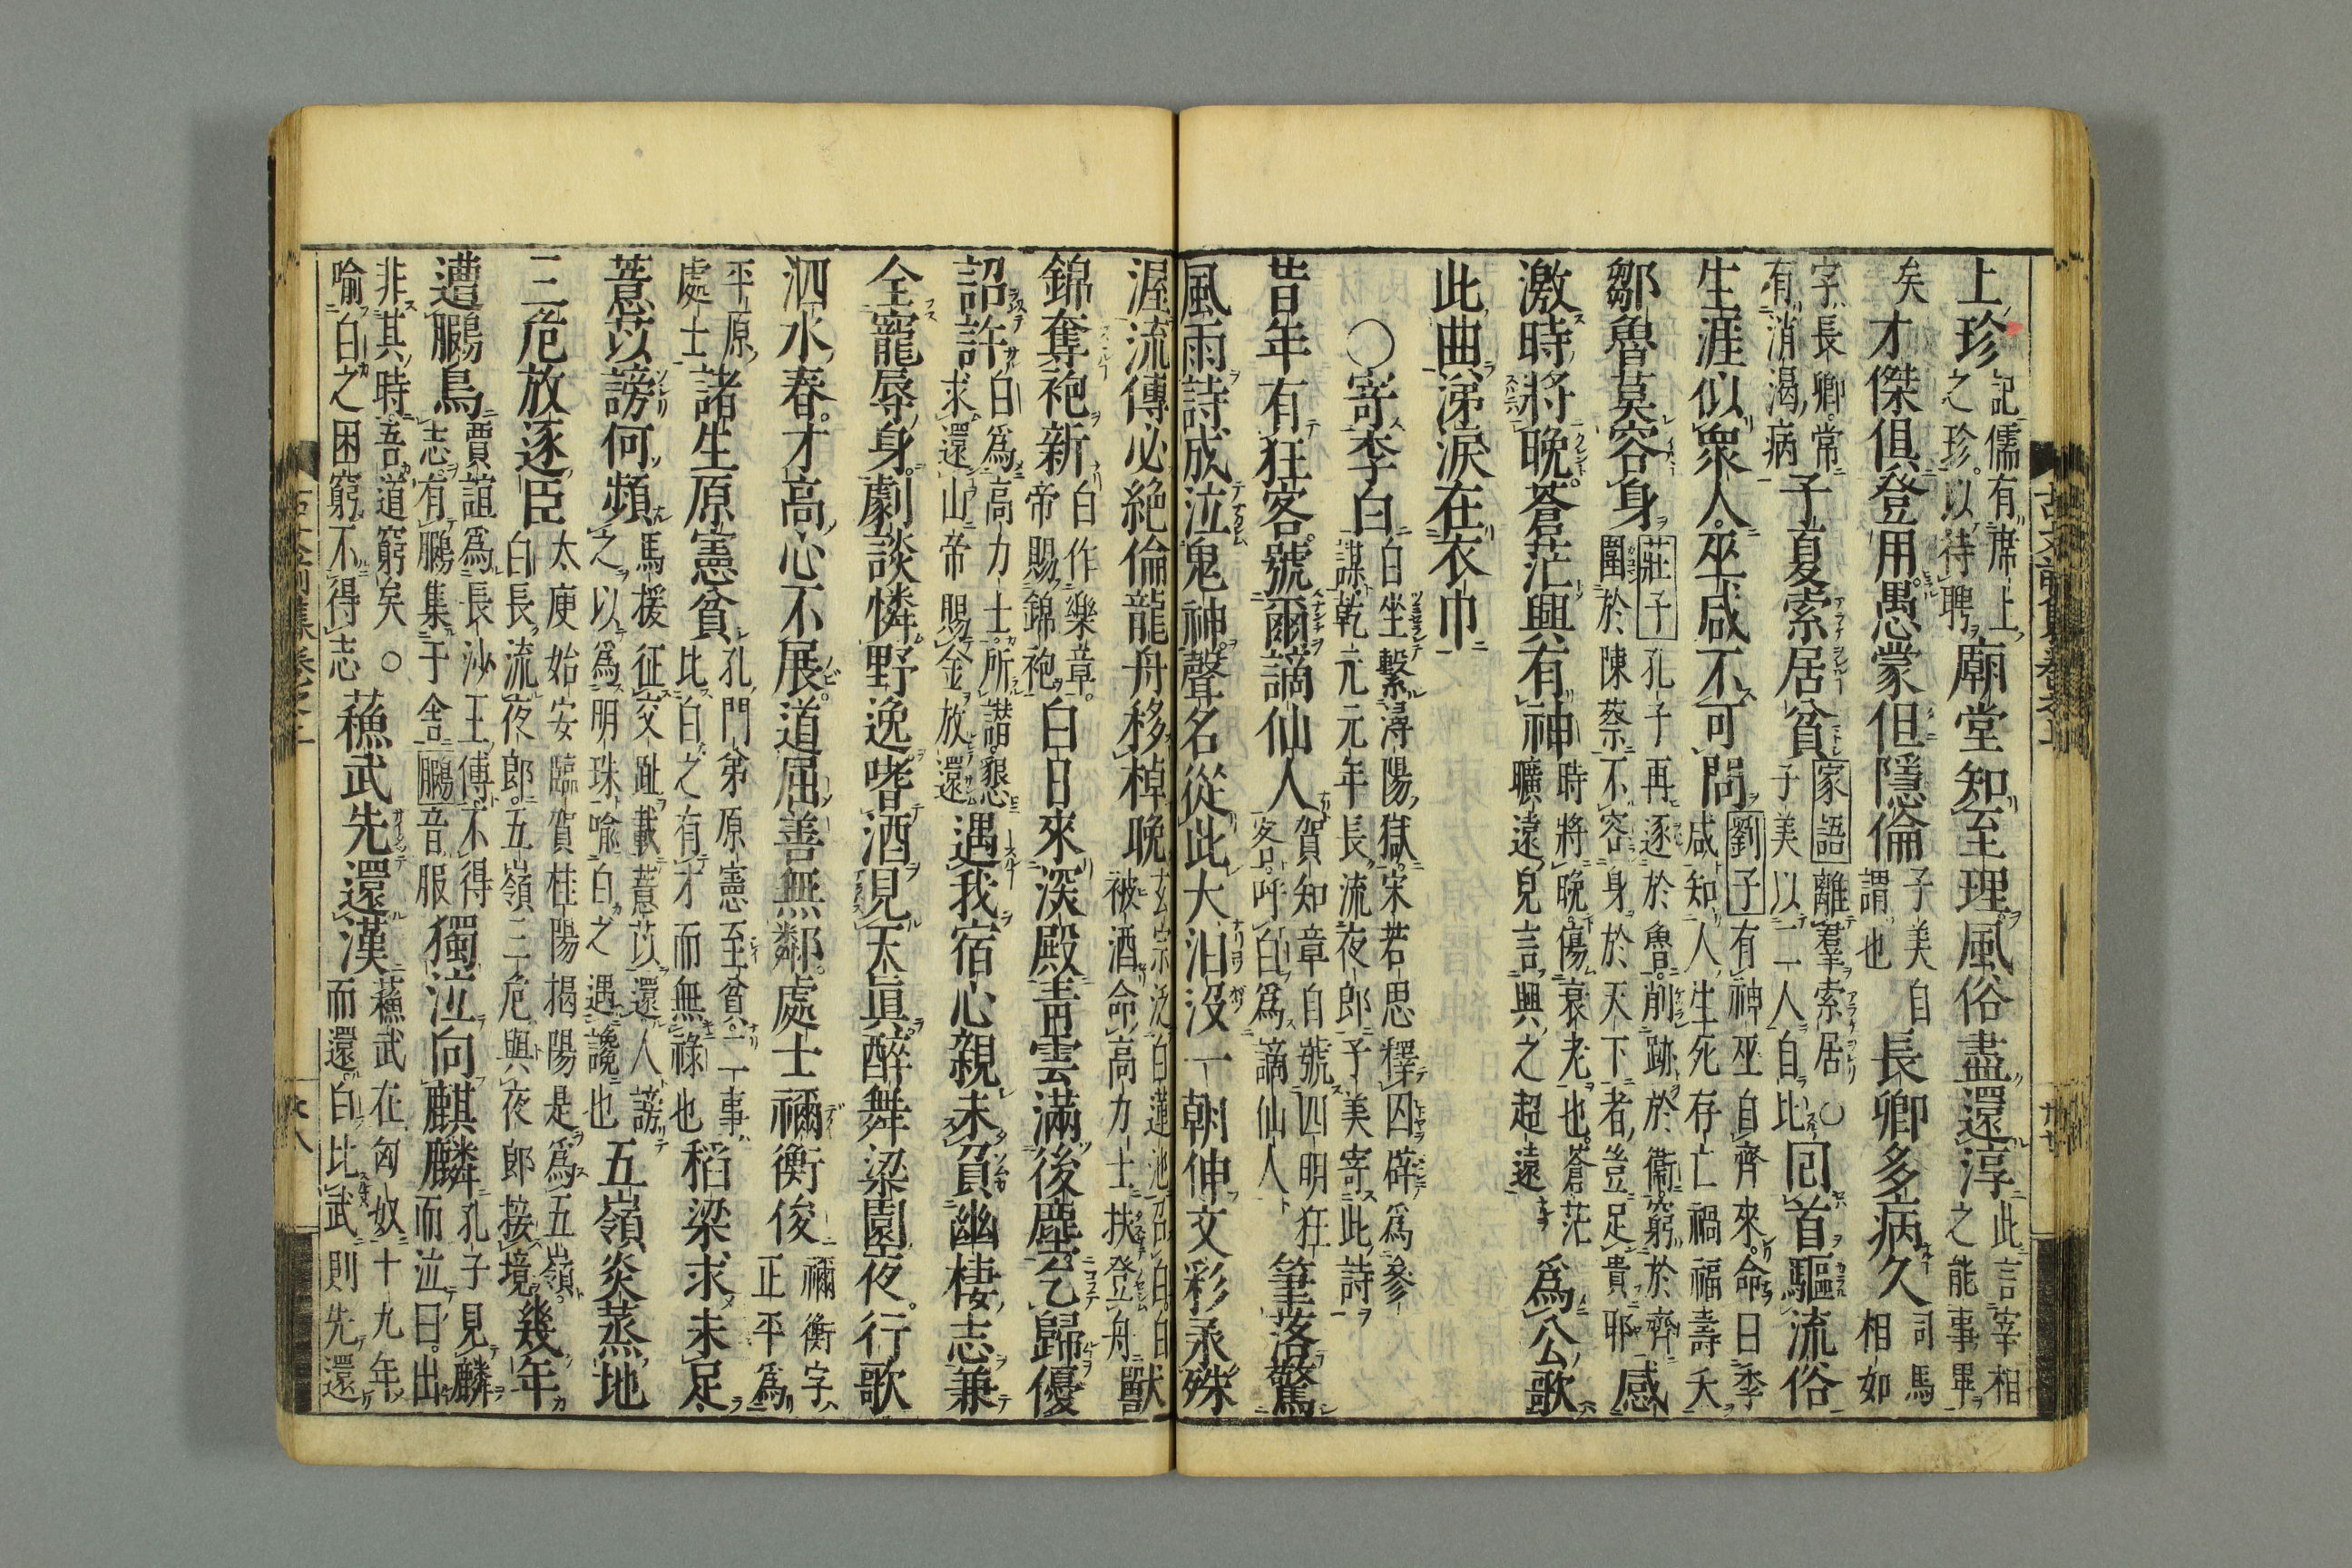 上珍記儒有席上之珍以待聘廟堂知至理風俗盡還淳此言宰相之能事畢
矣才傑俱登用愚蒙但隱倫子美自謂也長卿多病久司馬相如
字長卿常有消渴病子夏索居貧家語離羣索居○子美以二人自比回首驅流俗
生涯似衆人巫咸不可問劉子有神巫自齊來命曰季咸知人生死存亡禍福壽夭
鄒魯莫容身莊子孔子再逐於魯削跡於衞窮於齊圍於陳蔡不容身於天下者豈足貴耶感
激時將晚蒼茫興有神時將晚傷衰老也蒼茫曠遠皃言興之超遠爲公歌
此曲涕淚在衣巾
○寄李白白坐繫潯陽獄宋若思釋囚辟爲參謀乾元元年長流夜郎子美寄此詩
昔年有狂客號爾謫仙人賀知章自號四明狂客呼白爲謫仙人筆落驚
風雨詩成泣鬼神聲名從此大汨没一朝伸文彩承殊
渥流傳必絶倫龍舟移棹晚玄宗泛白蓮池召白白被酒命高力士扶登舟獸
錦奪袍新白作樂章帝賜錦袍白日來深殿青雲滿後塵乞歸優
詔許白爲高力士所譖懇求還山帝賜金放還遇我宿心親未負幽棲志兼
全寵辱身劇談憐野逸嗜酒見天眞醉舞梁園夜行歌
泗水春才高心不展道屈善無鄰處士禰衡俊禰衡字正平爲
平原處士諸生原憲貧孔門弟原憲至貧二事比白之有才而無祿也稻梁求未足
薏苡謗何頻馬援征交趾載薏苡還人謗之以爲明珠喻白之遇讒也五嶺炎蒸地
三危放逐臣太庾始安臨賀桂陽揭陽是爲五嶺白長流夜郎五嶺三危與夜郎接境幾年
遭鵩鳥賈誼爲長沙王傅不得志有鵩集于舍鵩音服獨泣向麒麟孔子見麟而泣曰出
非其時吾道窮矣○喻白之困窮不得志蘇武先還漢蘇武在匈奴十九年而還白比武則先還